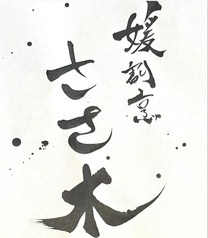 媛割烹
ささ木